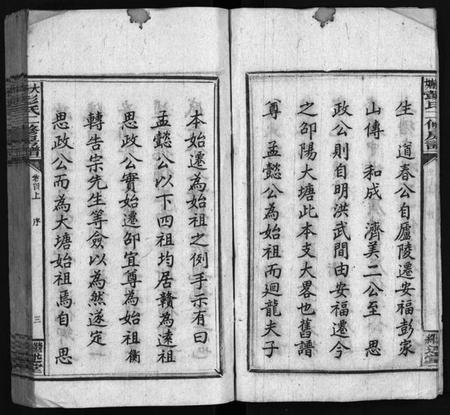 生 道春公自廬陵遷安福彭家
山傳 和成 濟美二公至 思
政公則自明洪武間由安福遷今
之邵陽大塘此本支大畧也舊譜
尊 孟懿公為始祖而廻龍夫子
本始遷為始祖之例手示有曰
孟懿公以下四祖均居贛為遠祖
思政公實始遷邵宜尊為始祖衡
轉告宗先生等僉以為然遂定
思政公而為大塘始祖焉自 思
大彭氏 修房譜
卷首上 序 三